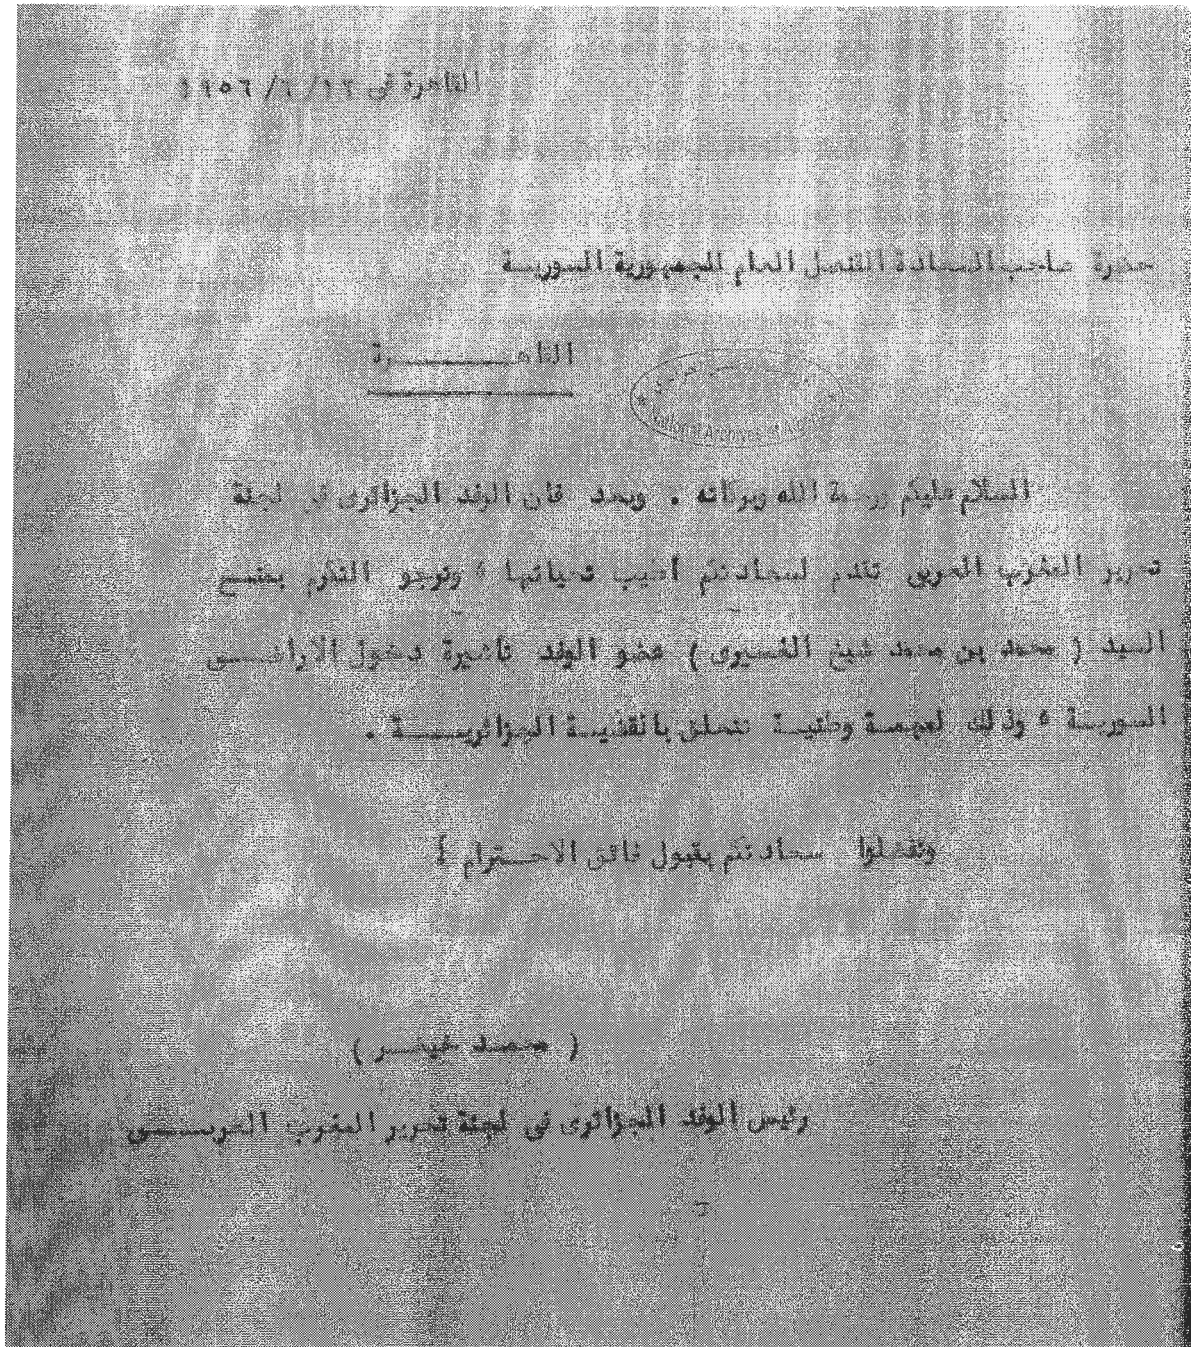 القاهرة في ١٢/ ٦/ ١٩٥٦
حضرة صاحب السعادة القنصل العام للجمهورية السوريـة
القاهـــــــــرة
National Archives
السلام عليكم ورحمة الله وبركاته . وبعد فان الوفد الجزائرى في لجنة
تحرير المغرب العربى تقدم لسعادتكم أطيب تحياتها ، وترجو التكرم بمنـح
السيد ( محمد بن محمد شيخ الغسيرى ) عضو الوفد تأشيرة دخول الاراضـــى
السوريـة ، وذلك لمهمـة وطنيـة تتعلق بالقضيـة الجزائريــــة .
وتفضلوا سعادتكم بقبول فائق الاحـــترام
( محمـد خيضـر )
رئيس الوفد الجزائرى في لجنة تحرير المغرب العربــــى